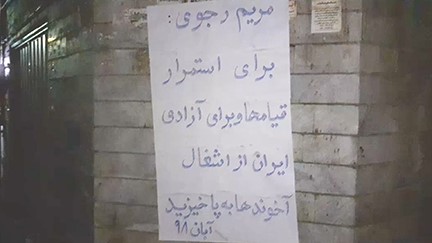 مریم رجوی :
برای استمرار
قیامها و برای آزادی
ایران از اشغال
آخوندها به پا خیزید
آبان ۹۸